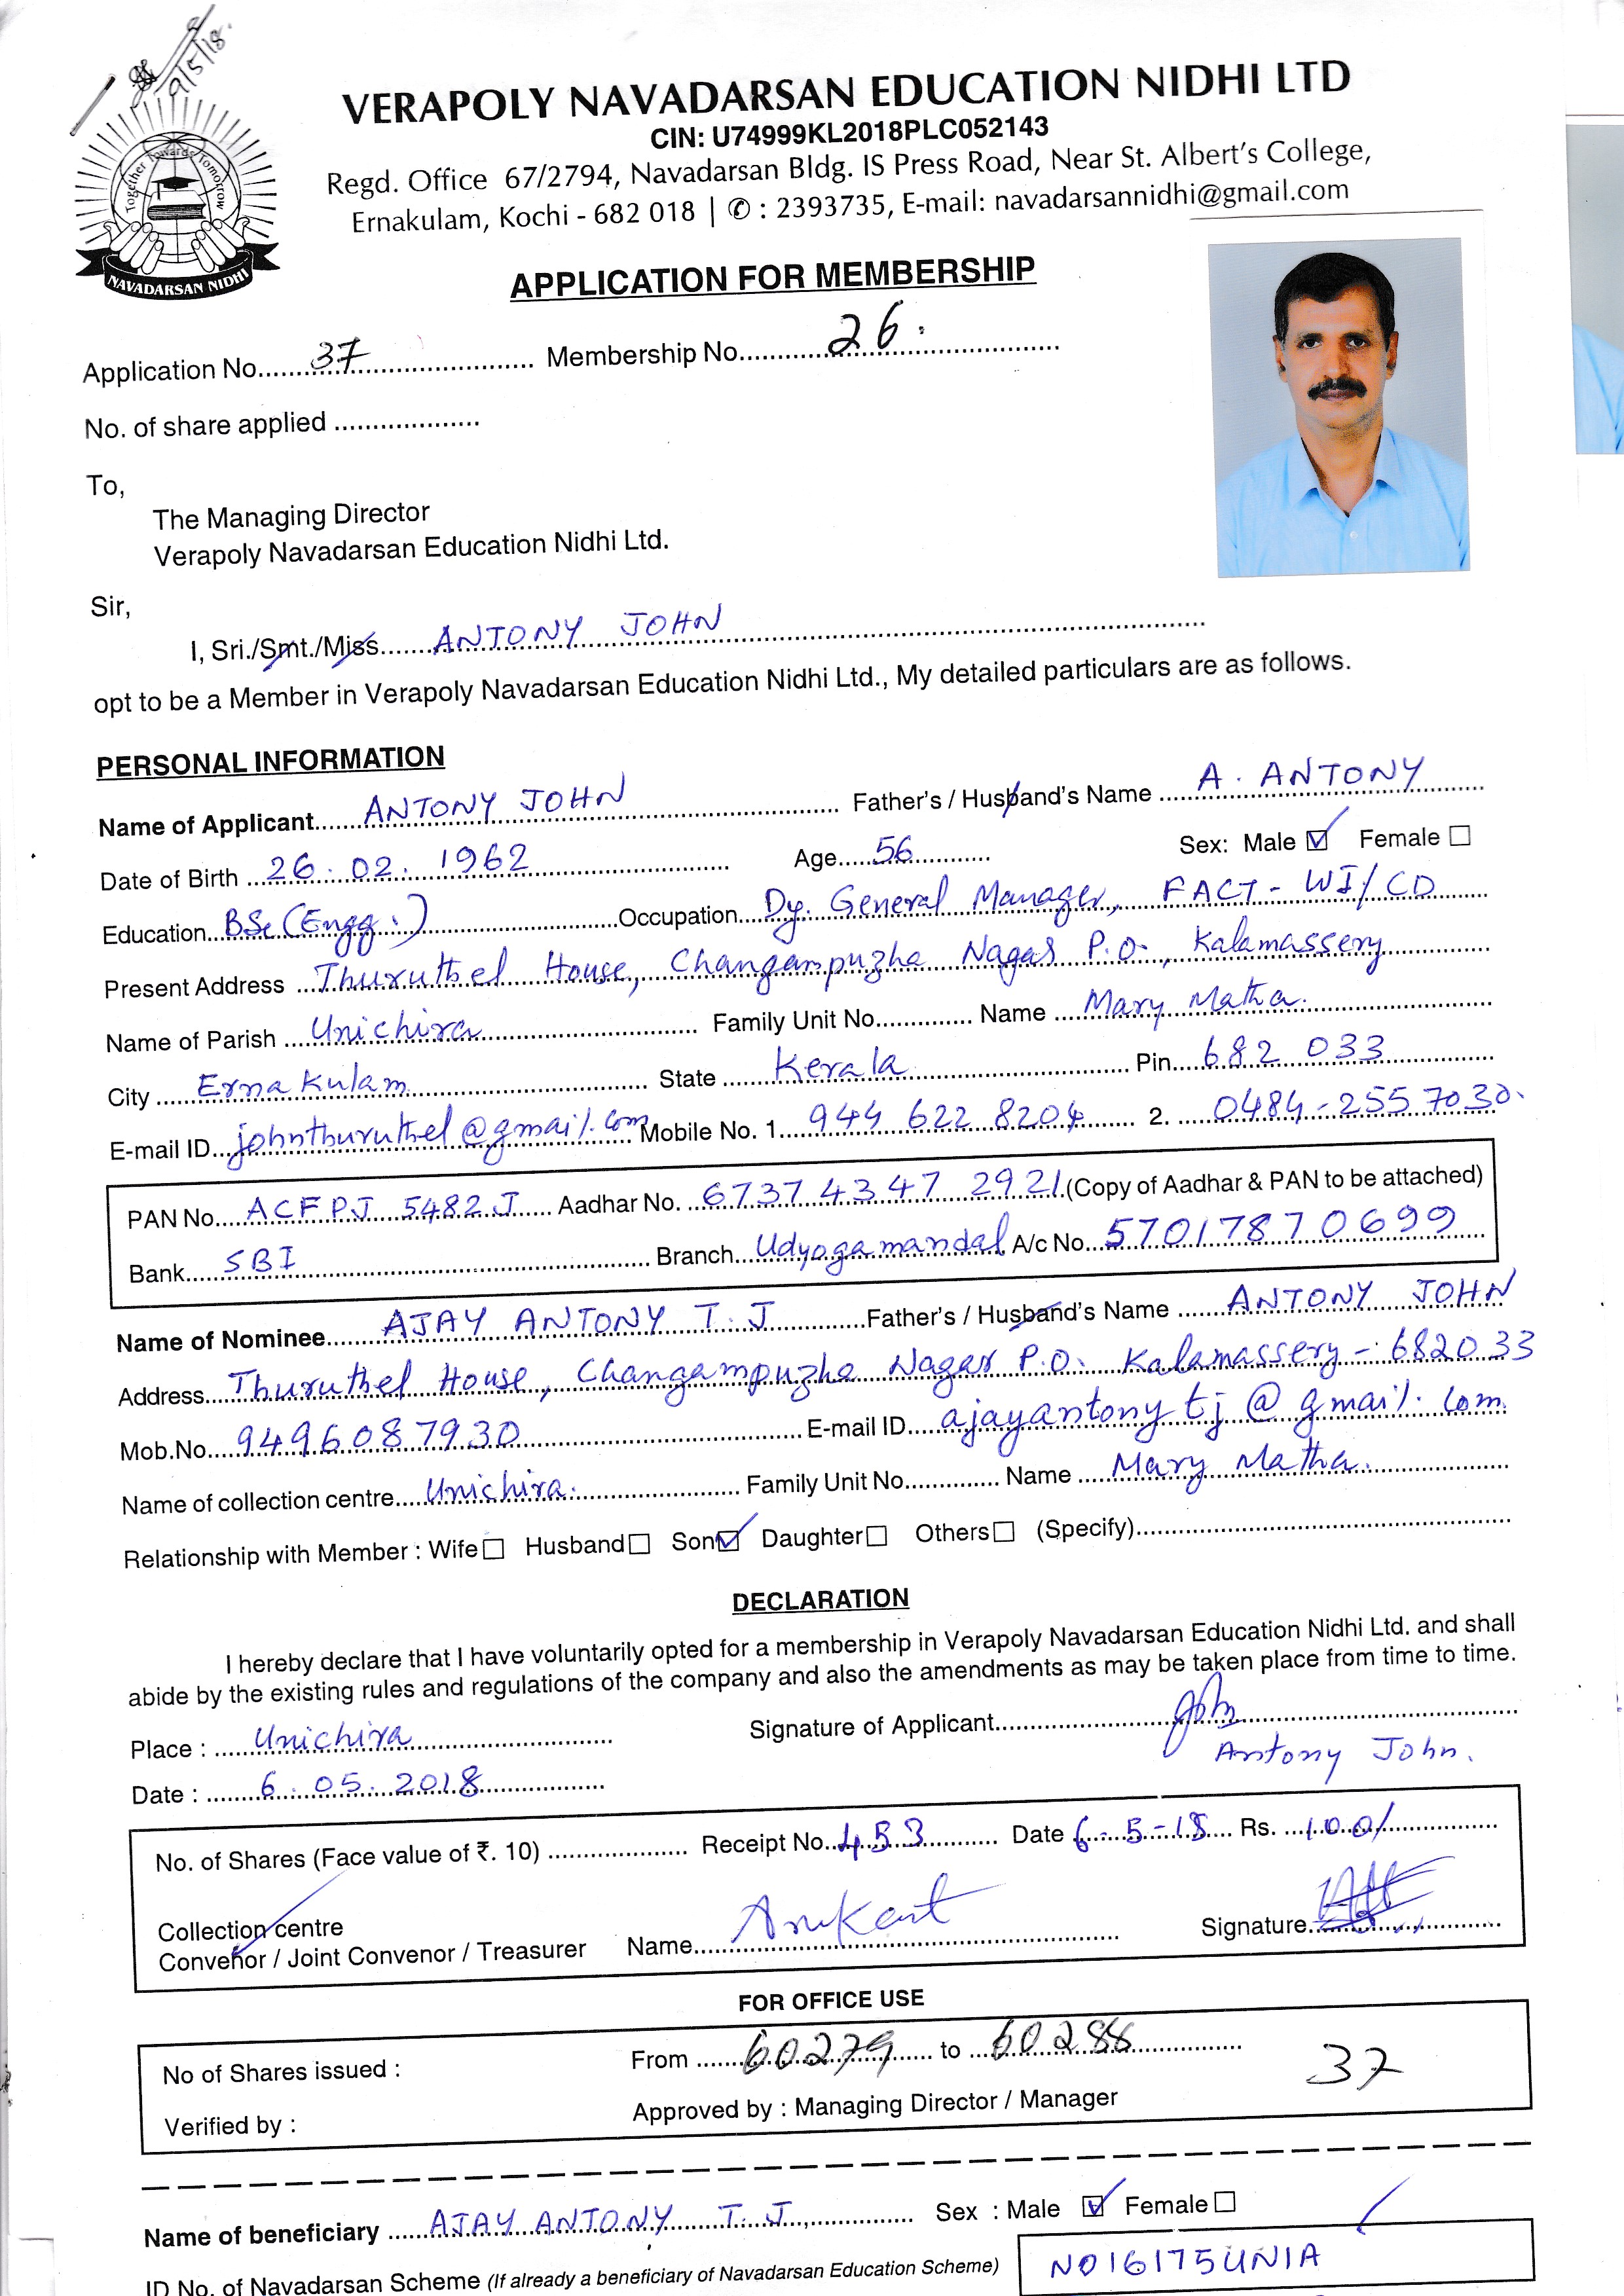 9/5/18.
Together Towards Tomorrow
NAVADARSAN NIDHI
VERAPOLY NAVADARSAN EDUCATION NIDHI LTD
CIN: U74999KL2018PLC052143
Regd. Office 67/2794, Navadarsan Bldg. IS Press Road, Near St. Albert's College,
Ernakulam, Kochi - 682 018 | ✆ : 2393735, E-mail: navadarsannidhi@gmail.com
APPLICATION FOR MEMBERSHIP
Application No. 37 Membership No. 26.
No. of share applied
To,
The Managing Director
Verapoly Navadarsan Education Nidhi Ltd.
Sir,
I, Sri./Smt./Miss ANTONY JOHN
opt to be a Member in Verapoly Navadarsan Education Nidhi Ltd., My detailed particulars are as follows.
PERSONAL INFORMATION
Name of Applicant ANTONY JOHN Father's / Husband's Name A. ANTONY
Date of Birth 26.02.1962 Age 56 Sex: Male ☑ Female ☐
Education BSc (Engg.) Occupation Dy. General Manager, FACT - WI/CD
Present Address Thuruthel House, Changampuzha Nagar P.O., Kalamassery
Name of Parish Unichira Family Unit No. Name Mary Matha.
City Ernakulam State Kerala Pin 682 033
E-mail ID johnthuruthel@gmail.com Mobile No. 1. 944 622 8204 2. 0484-2557030.
PAN No. ACFPJ 5482J Aadhar No. 6737 4347 2921 (Copy of Aadhar & PAN to be attached)
Bank SBI Branch Udyogamandal A/c No. 57017870699
Name of Nominee AJAY ANTONY T.J Father's / Husband's Name ANTONY JOHN
Address Thuruthel House, Changampuzha Nagar P.O. Kalamassery - 682033
Mob.No. 9496087930 E-mail ID ajayantonytj@gmail.com
Name of collection centre Unichira. Family Unit No. Name Mary Matha.
Relationship with Member : Wife ☐ Husband ☐ Son ☑ Daughter ☐ Others ☐ (Specify)
DECLARATION
I hereby declare that I have voluntarily opted for a membership in Verapoly Navadarsan Education Nidhi Ltd. and shall
abide by the existing rules and regulations of the company and also the amendments as may be taken place from time to time.
Place : Unichira Signature of Applicant John
Antony John.
Date : 6.05.2018
No. of Shares (Face value of ₹. 10) Receipt No. 453 Date 6-5-18 Rs. 100/
Collection centre
Convenor / Joint Convenor / Treasurer Name Signature
FOR OFFICE USE
No of Shares issued : From 60279 to 60288 37
Verified by : Approved by : Managing Director / Manager
Name of beneficiary AJAY ANTONY T.J. Sex : Male ☑ Female ☐
ID No. of Navadarsan Scheme (If already a beneficiary of Navadarsan Education Scheme) N016175UNIA